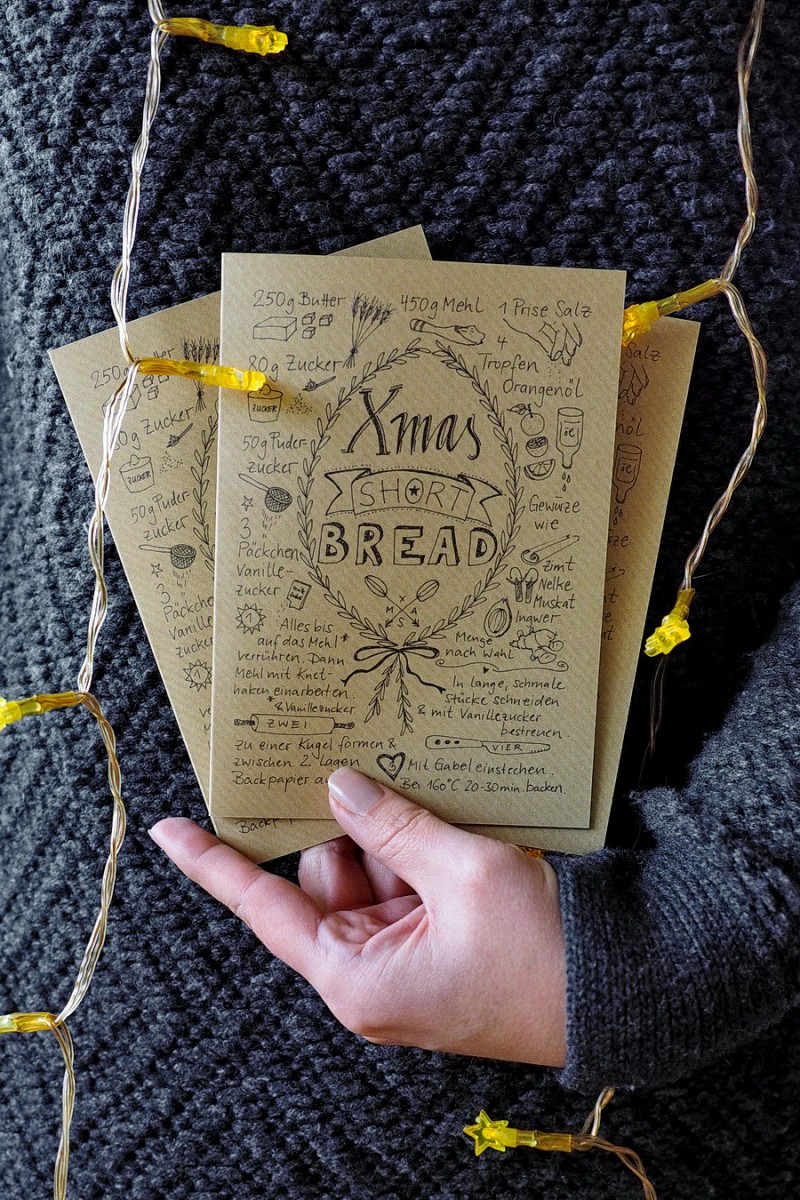 250g Butter
450g Mehl
1 Prise Salz
80g Zucker
ZUCKER
4
Tropfen
Orangenöl
Xmas
SHORT
BREAD
50g Puder-
zucker
3
Päckchen
Vanille-
zucker
Gewürze
wie
Zimt
Nelke
Muskat
Ingwer
Menge
nach Wahl
X
M A
S
1
Alles bis
auf das Mehl*
verrühren. Dann
Mehl mit Knet-
haken einarbeiten.
*& Vanillezucker
ZWEI
zu einer Kugel formen &
zwischen 2 Lagen
Backpapier
In lange, schmale
Stücke schneiden
& mit Vanillezucker
bestreuen.
VIER
Mit Gabel einstechen.
Bei 160°C 20-30min. backen.
250g
80g Zucker
ZUCKER
50g Puder-
zucker
3
Päckchen
Vanille
zucker
1
Salz